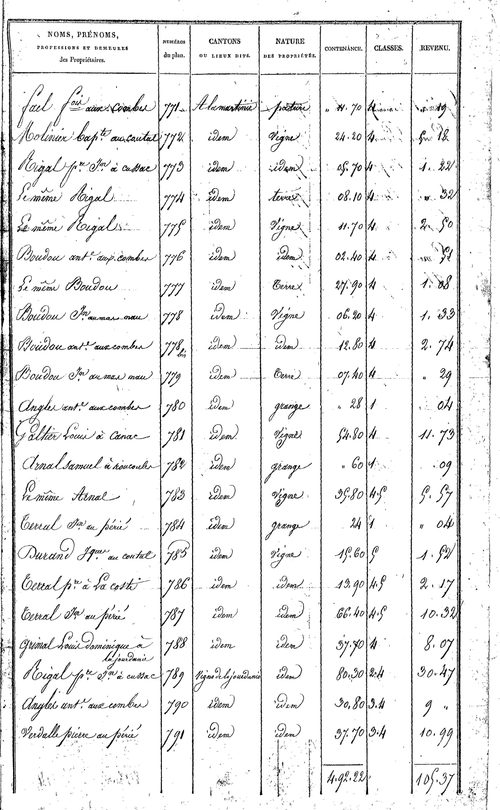 NOMS, PRÉNOMS, PROFESSIONS ET DEMEURES des Propriétaires. NUMÉROS du plan. CANTONS OU LIEUX DITS. NATURE DES PROPRIÉTÉS. CONTENANCE. CLASSES. REVENU.
fael fois aux combes 771 A la martinie pature " 11.70 4 " 19
Molinier bapte au cautal 772 idem Vigne 24.20 4 5 18
Rigal pre Jn à cussac 773 idem idem 05.70 4 1.22
Le même Rigal 774 idem terre 08.10 4 " 32
Le même Rigal 775 idem Vigne 11.70 4 2.50
Boudou ant. aux combes 776 idem idem 02.40 4 " 51
Le même Boudou 777 idem Terre 27.90 4 1.08
Boudou Jn au mas nau 778 idem Vigne 06.20 4 1.33
Boudou ant. aux combes 778 bis idem idem 12.80 4 2.74
Boudou Jn au mas nau 779 idem Terre 07.40 4 " 29
Angles ant. aux combes 780 idem grange " 28 1 " 04
Galtier Louis à Canac 781 idem Vigne 54.80 4 11.73
Arnal samuel à 782 idem grange " 60 1 " 09
Le même Arnal 783 idem Vigne 35.80 4.5 5.57
Terral Jn au périé 784 idem grange 24 1 " 04
Durand Jque au contal 785 idem Vigne 15.60 5 1.52
Terral pre à La coste 786 idem idem 13.90 4.5 2.17
Terral Jn au périé 787 idem idem 66.40 4.5 10.32
grimal Louis dominique à la jourdanie 788 idem idem 37.70 4 8.07
Rigal pre Jn à cussac 789 Vigne de la jourdanie idem 80.30 2.4 30.47
Angles ant. aux combes 790 idem idem 30.80 3.4 9 "
Verdalle pierre au périé 791 idem idem 37.70 3.4 10.99
4.92.22 105.37